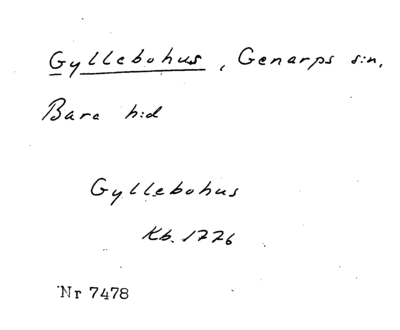 Gyllebohus, Genarps s:n,
Bara h:d
Gyllebohus
Kb. 1776
Nr 7478